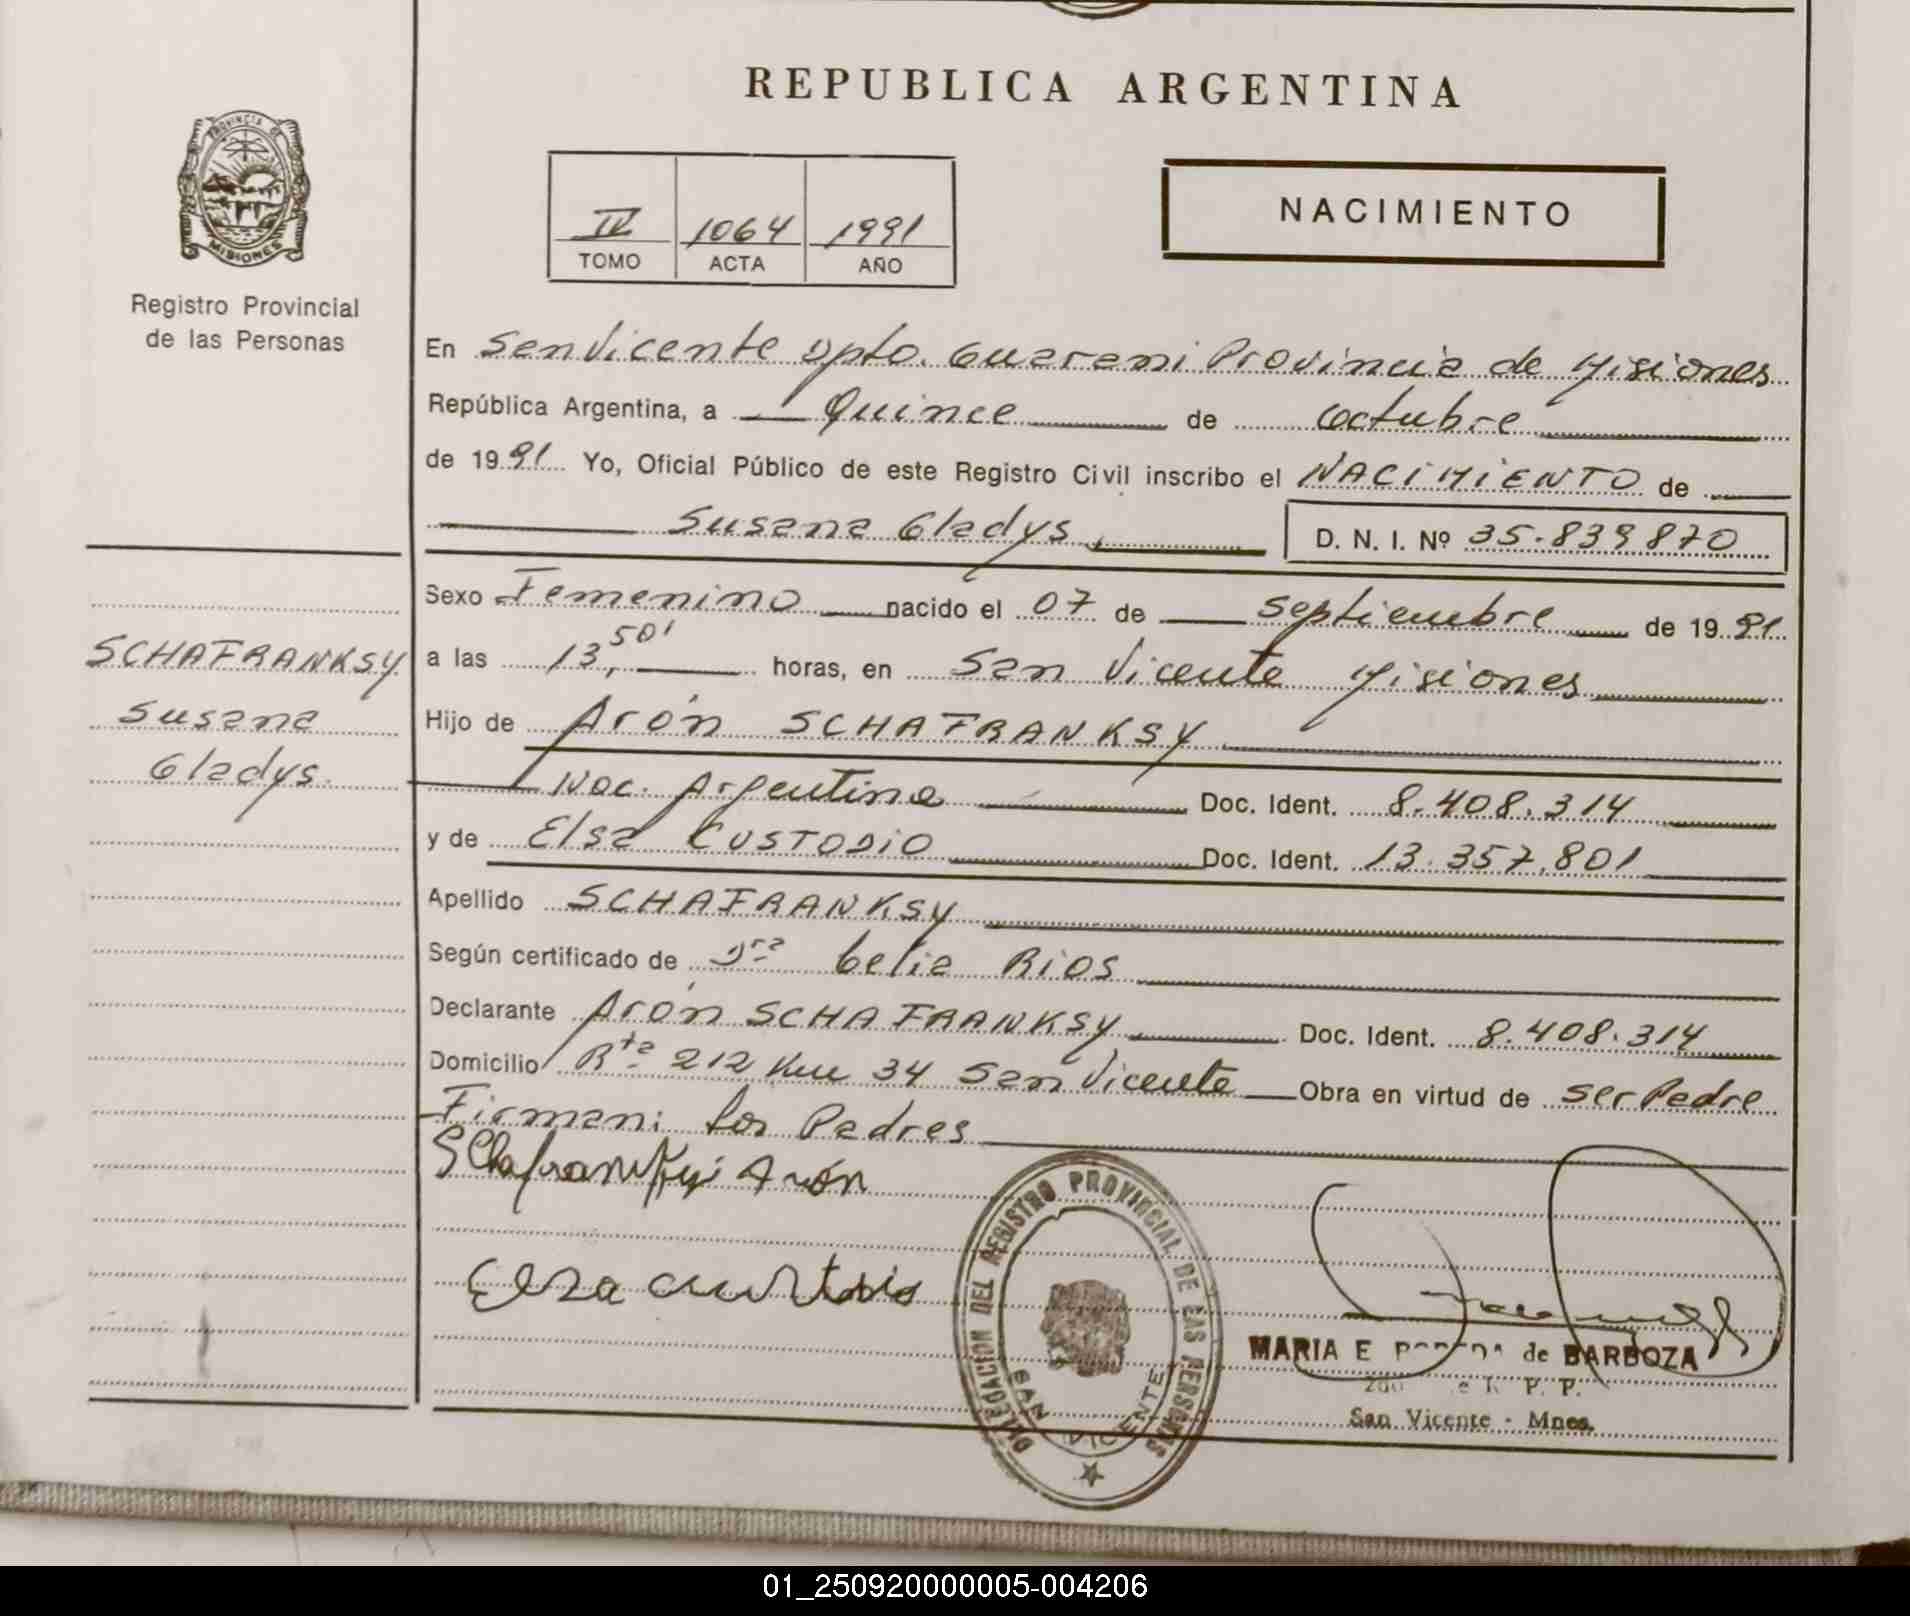 REPUBLICA ARGENTINA
PROVINCIA DE
MISIONES
Registro Provincial
de las Personas
IV 1064 1991
TOMO ACTA AÑO
NACIMIENTO
En San Vicente Dpto. Guarani Provincia de Misiones
República Argentina, a Quince de Octubre
de 1991 Yo, Oficial Público de este Registro Civil inscribo el NACIMIENTO de
Susana Gladys, D. N. I. Nº 35.839870
Sexo Femenino nacido el 07 de Septiembre de 1991
a las 13,50' horas, en San Vicente Misiones
Hijo de Arón SCHAFRANKSY
Nac. Argentina Doc. Ident. 8.408.314
y de Elsa CUSTODIO Doc. Ident. 13.357.801
Apellido SCHAFRANKSY
Según certificado de Dra Celia Rios
Declarante Arón SCHAFRANKSY Doc. Ident. 8.408.314
Domicilio Rta 212 Km 34 San Vicente Obra en virtud de ser Padre
Firman: Los Padres
SCHAFRANKSY
Susana
Gladys.
Schafranksyi Arón
Elsa custodio
DELEGACION DEL REGISTRO PROVINCIAL DE LAS PERSONAS
SAN VICENTE
MARIA E de BARBOZA
P. P.
San Vicente - Mnes.
01_250920000005-004206